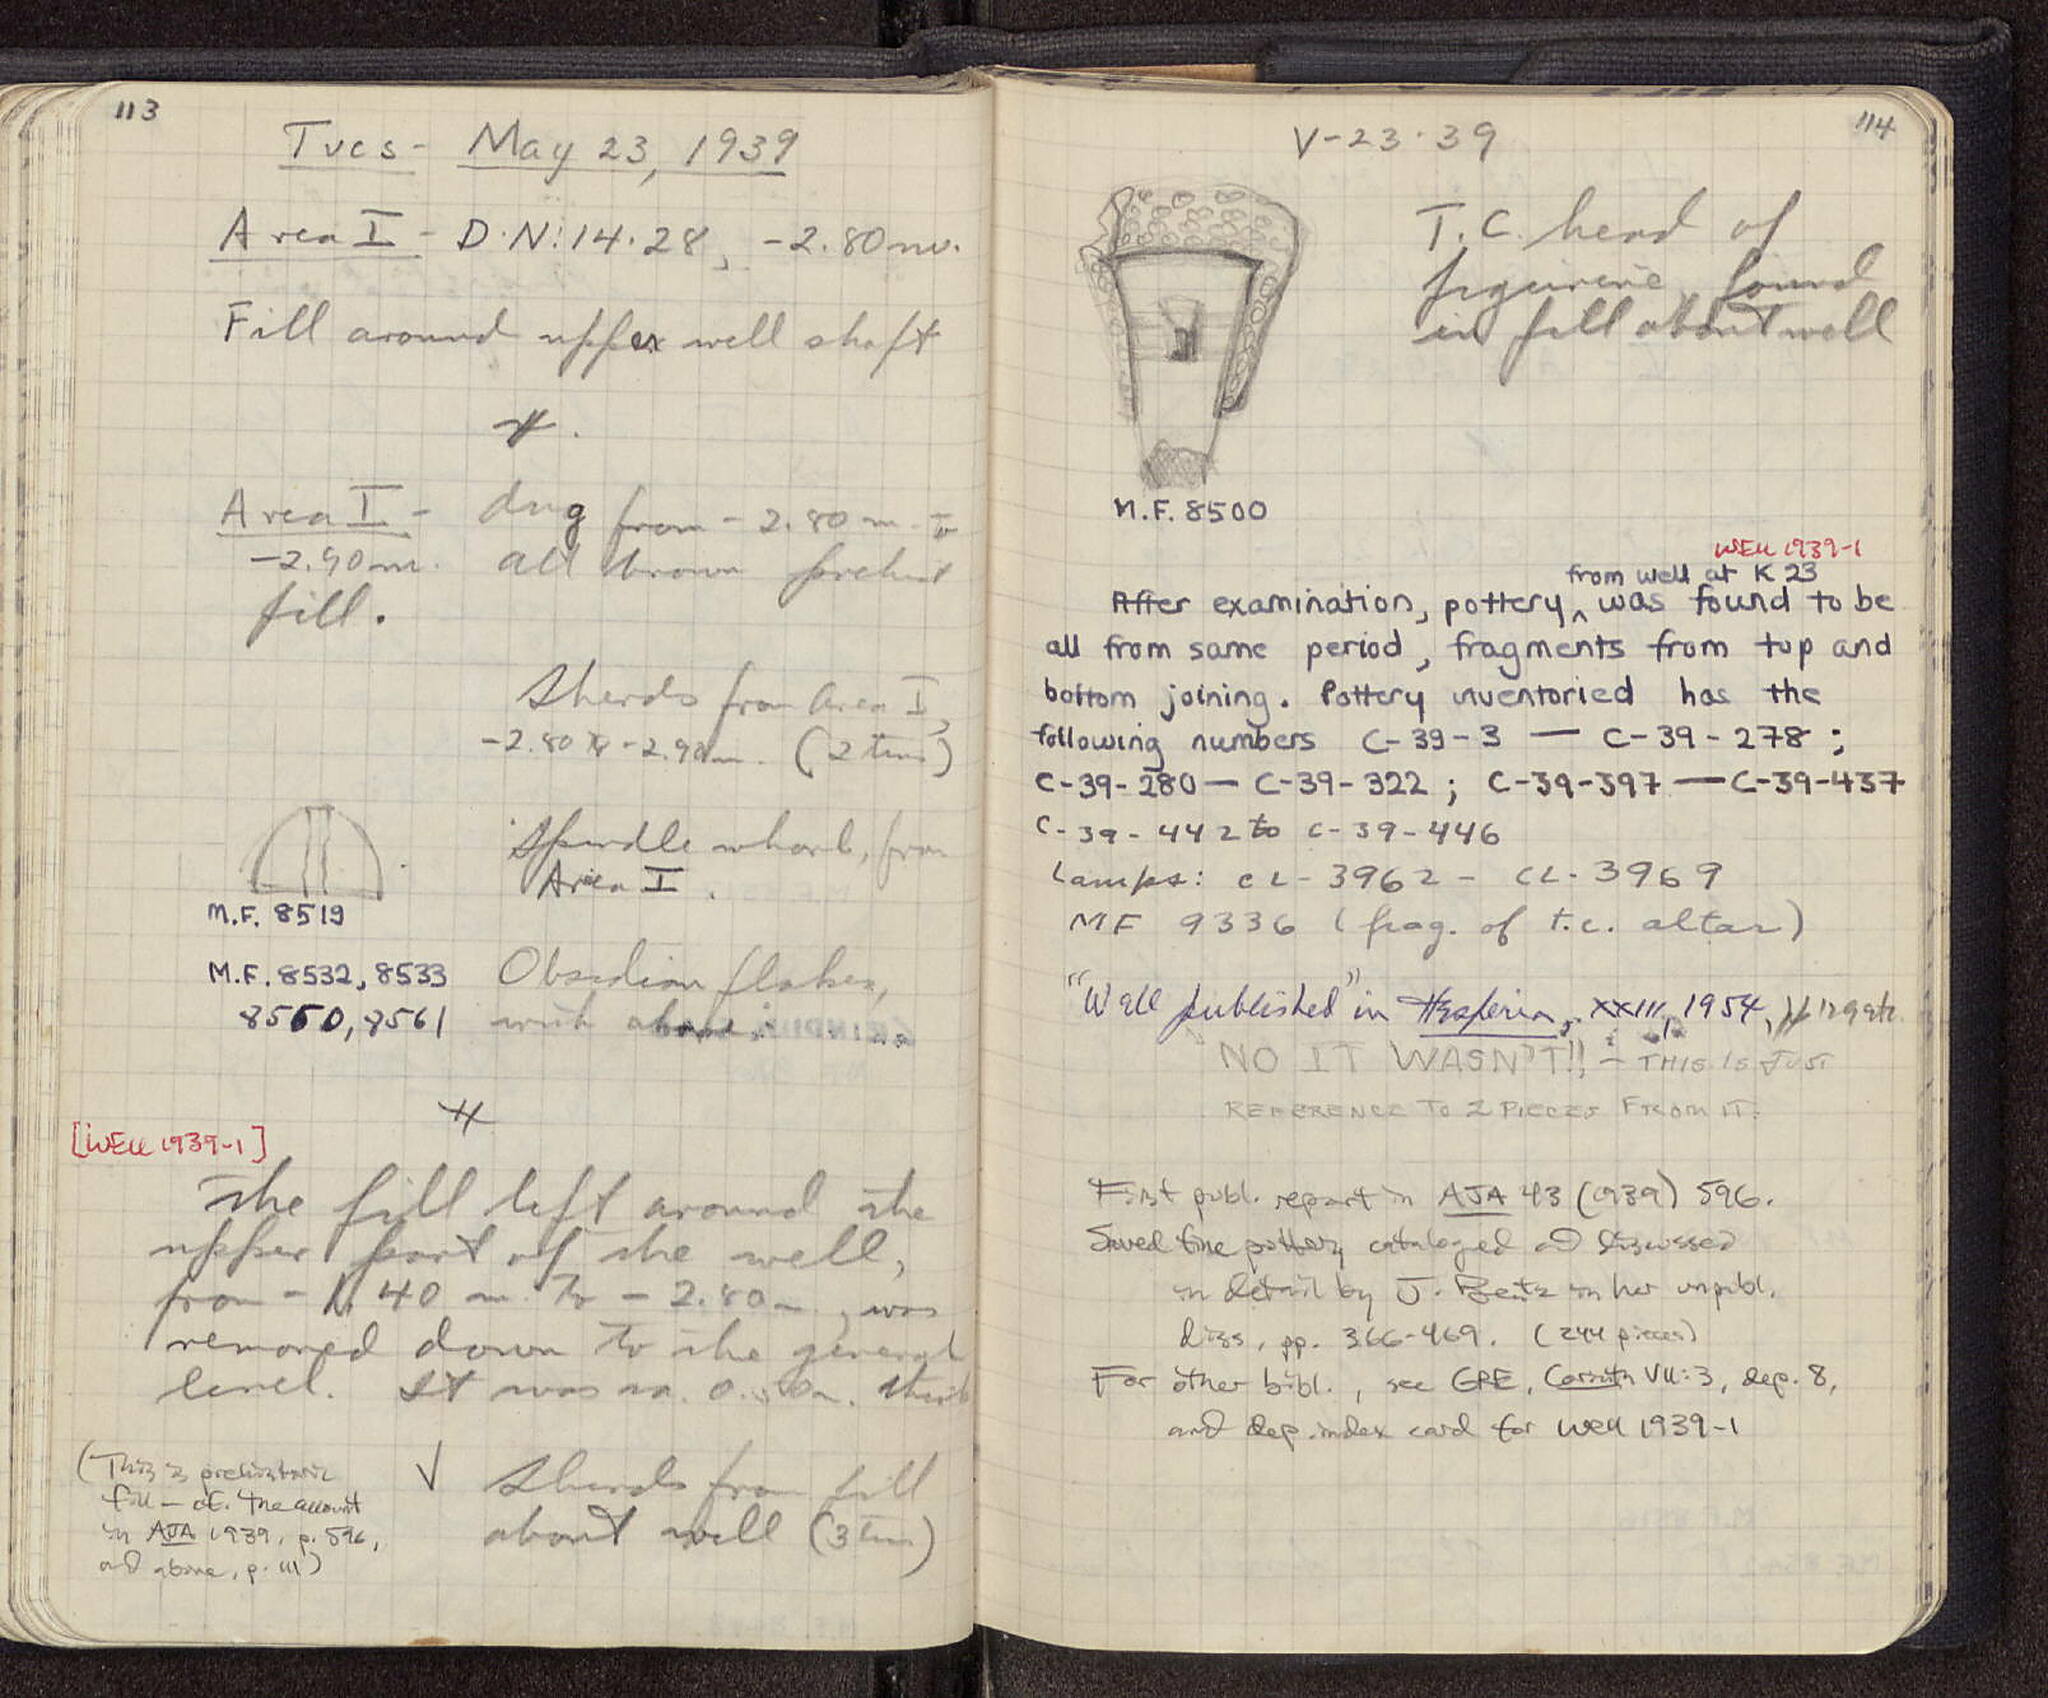 113
Tues- May 23, 1939
Area I - D.N: 14.28, -2.80 m.
Fill around upper well shaft
Area I - dug from -2.80 m. to
-2.90 m. all brown prehist
fill.
Sherds from Area I,
-2.80 to -2.90 m. (2 tins)
Spindle whorl, from
Area I.
M.F. 8519
M.F. 8532, 8533 Obsidian flakes,
8560, 8561 with above.
[WELL 1939-1]
The fill left around the
upper part of the well,
from -1.40 m. to -2.80 m., was
removed down to the general
level. It was ca. thick
(This is prehistoric
fill - cf. the account
in AJA 1939, p. 596,
and above, p. 111)
√ Sherds from fill
about well (3 tins)
114
V-23-39
T.C. head of
figurine, found
in fill about well
M.F. 8500
WELL 1939-1
from well at K 23
After examination, pottery ^ was found to be
all from same period, fragments from top and
bottom joining. Pottery inventoried has the
following numbers C-39-3 — C-39-278;
C-39-280 — C-39-322; C-39-397 — C-39-437
C-39-442 to C-39-446
Lamps: CL-3962 - CL-3969
MF 9336 (frag. of t.c. altar)
"Well published" in Hesperia, XXIII, 1954,
NO IT WASN'T!! - THIS IS JUST
REFERENCE TO 2 PIECES FROM IT.
First publ. report in AJA 43 (1939) 596.
Saved fine pottery cataloged and discussed
in detail by J. Bentz in her unpubl.
diss, pp. 366-469. (244 pieces)
For other bibl., see GRE, Corinth VII:3, dep. 8,
and dep. index card for Well 1939-1